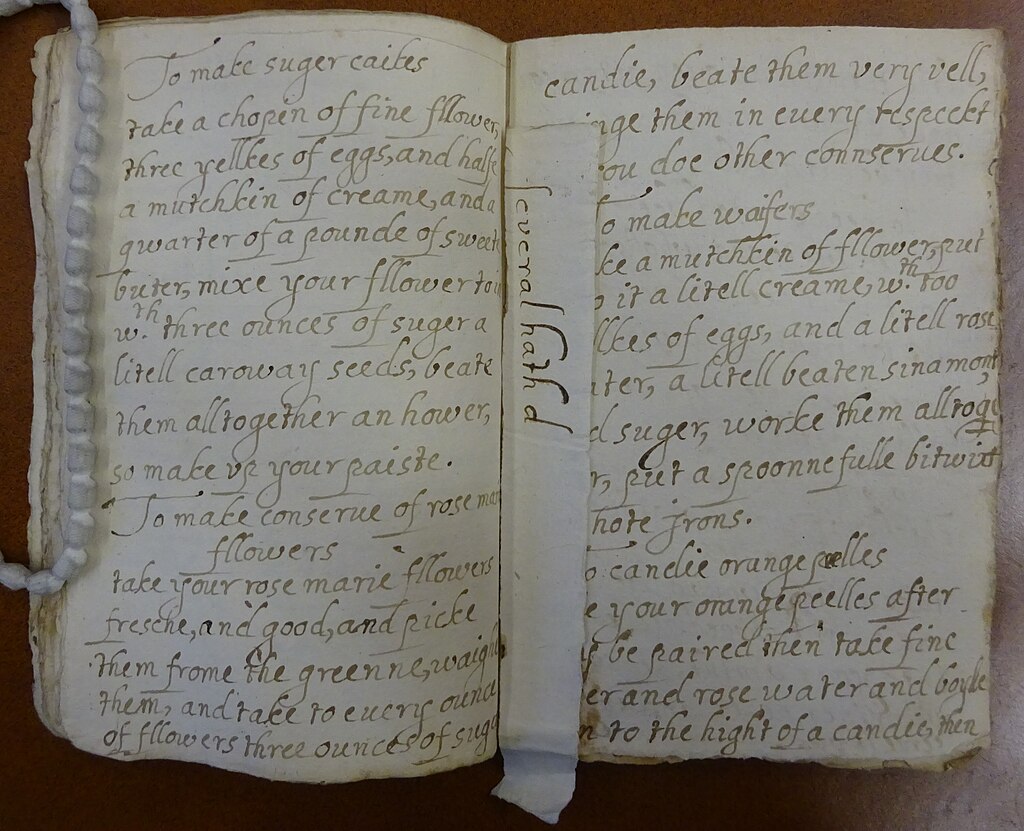 To make suger caikes
take a chopin of fine fllower,
three yellkes of eggs, and halfe
a mutchkin of creame, and a
qwarter of a pounde of sweete
buter, mixe your fllower to
w.th three ounces of suger a
litell caroway seeds, beate
them alltogether an hower,
so make vp your paiste.
To make conserve of rose mar
fllowers
take your rose marie fllowers
fresche, and good, and picke
them frome the greenne, waigh
them, and take to euery ounce
of fllowers three ounces of sug
candie, beate them very vell,
inge them in euery respeckt
ou doe other connserues.
o make waifers
ke a mutchkin of fllower, put
o it a litell creame, w.th too
llkes of eggs, and a litell rose
ater, a litell beaten sinamont
d suger, worke them alltoge
r, put a spoonnefulle bitwixt
hote jrons.
o candie orange peelles
e your orange peelles after
be paired then take fine
er and rose water and boyle
m to the hight of a candie, then
severalhathd